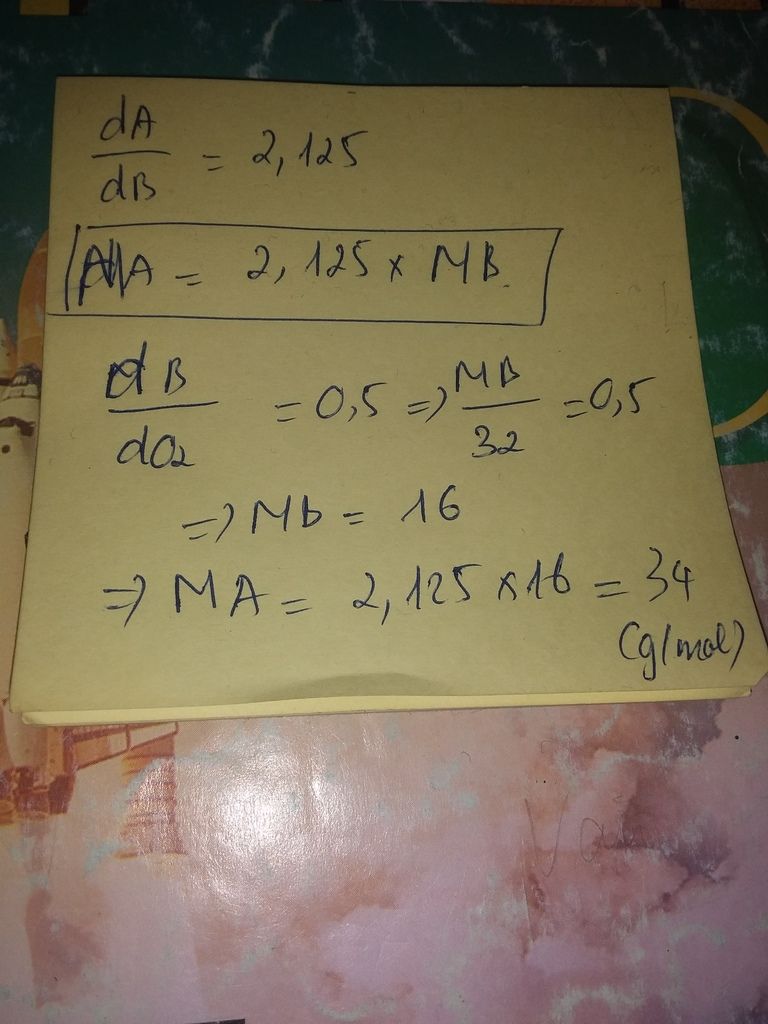 dA/dB = 2,125
MA = 2,125 x MB.
dB/dO2 = 0,5 => MB/32 = 0,5
=> Mb = 16
=> MA = 2,125 x 16 = 34
(g/mol)